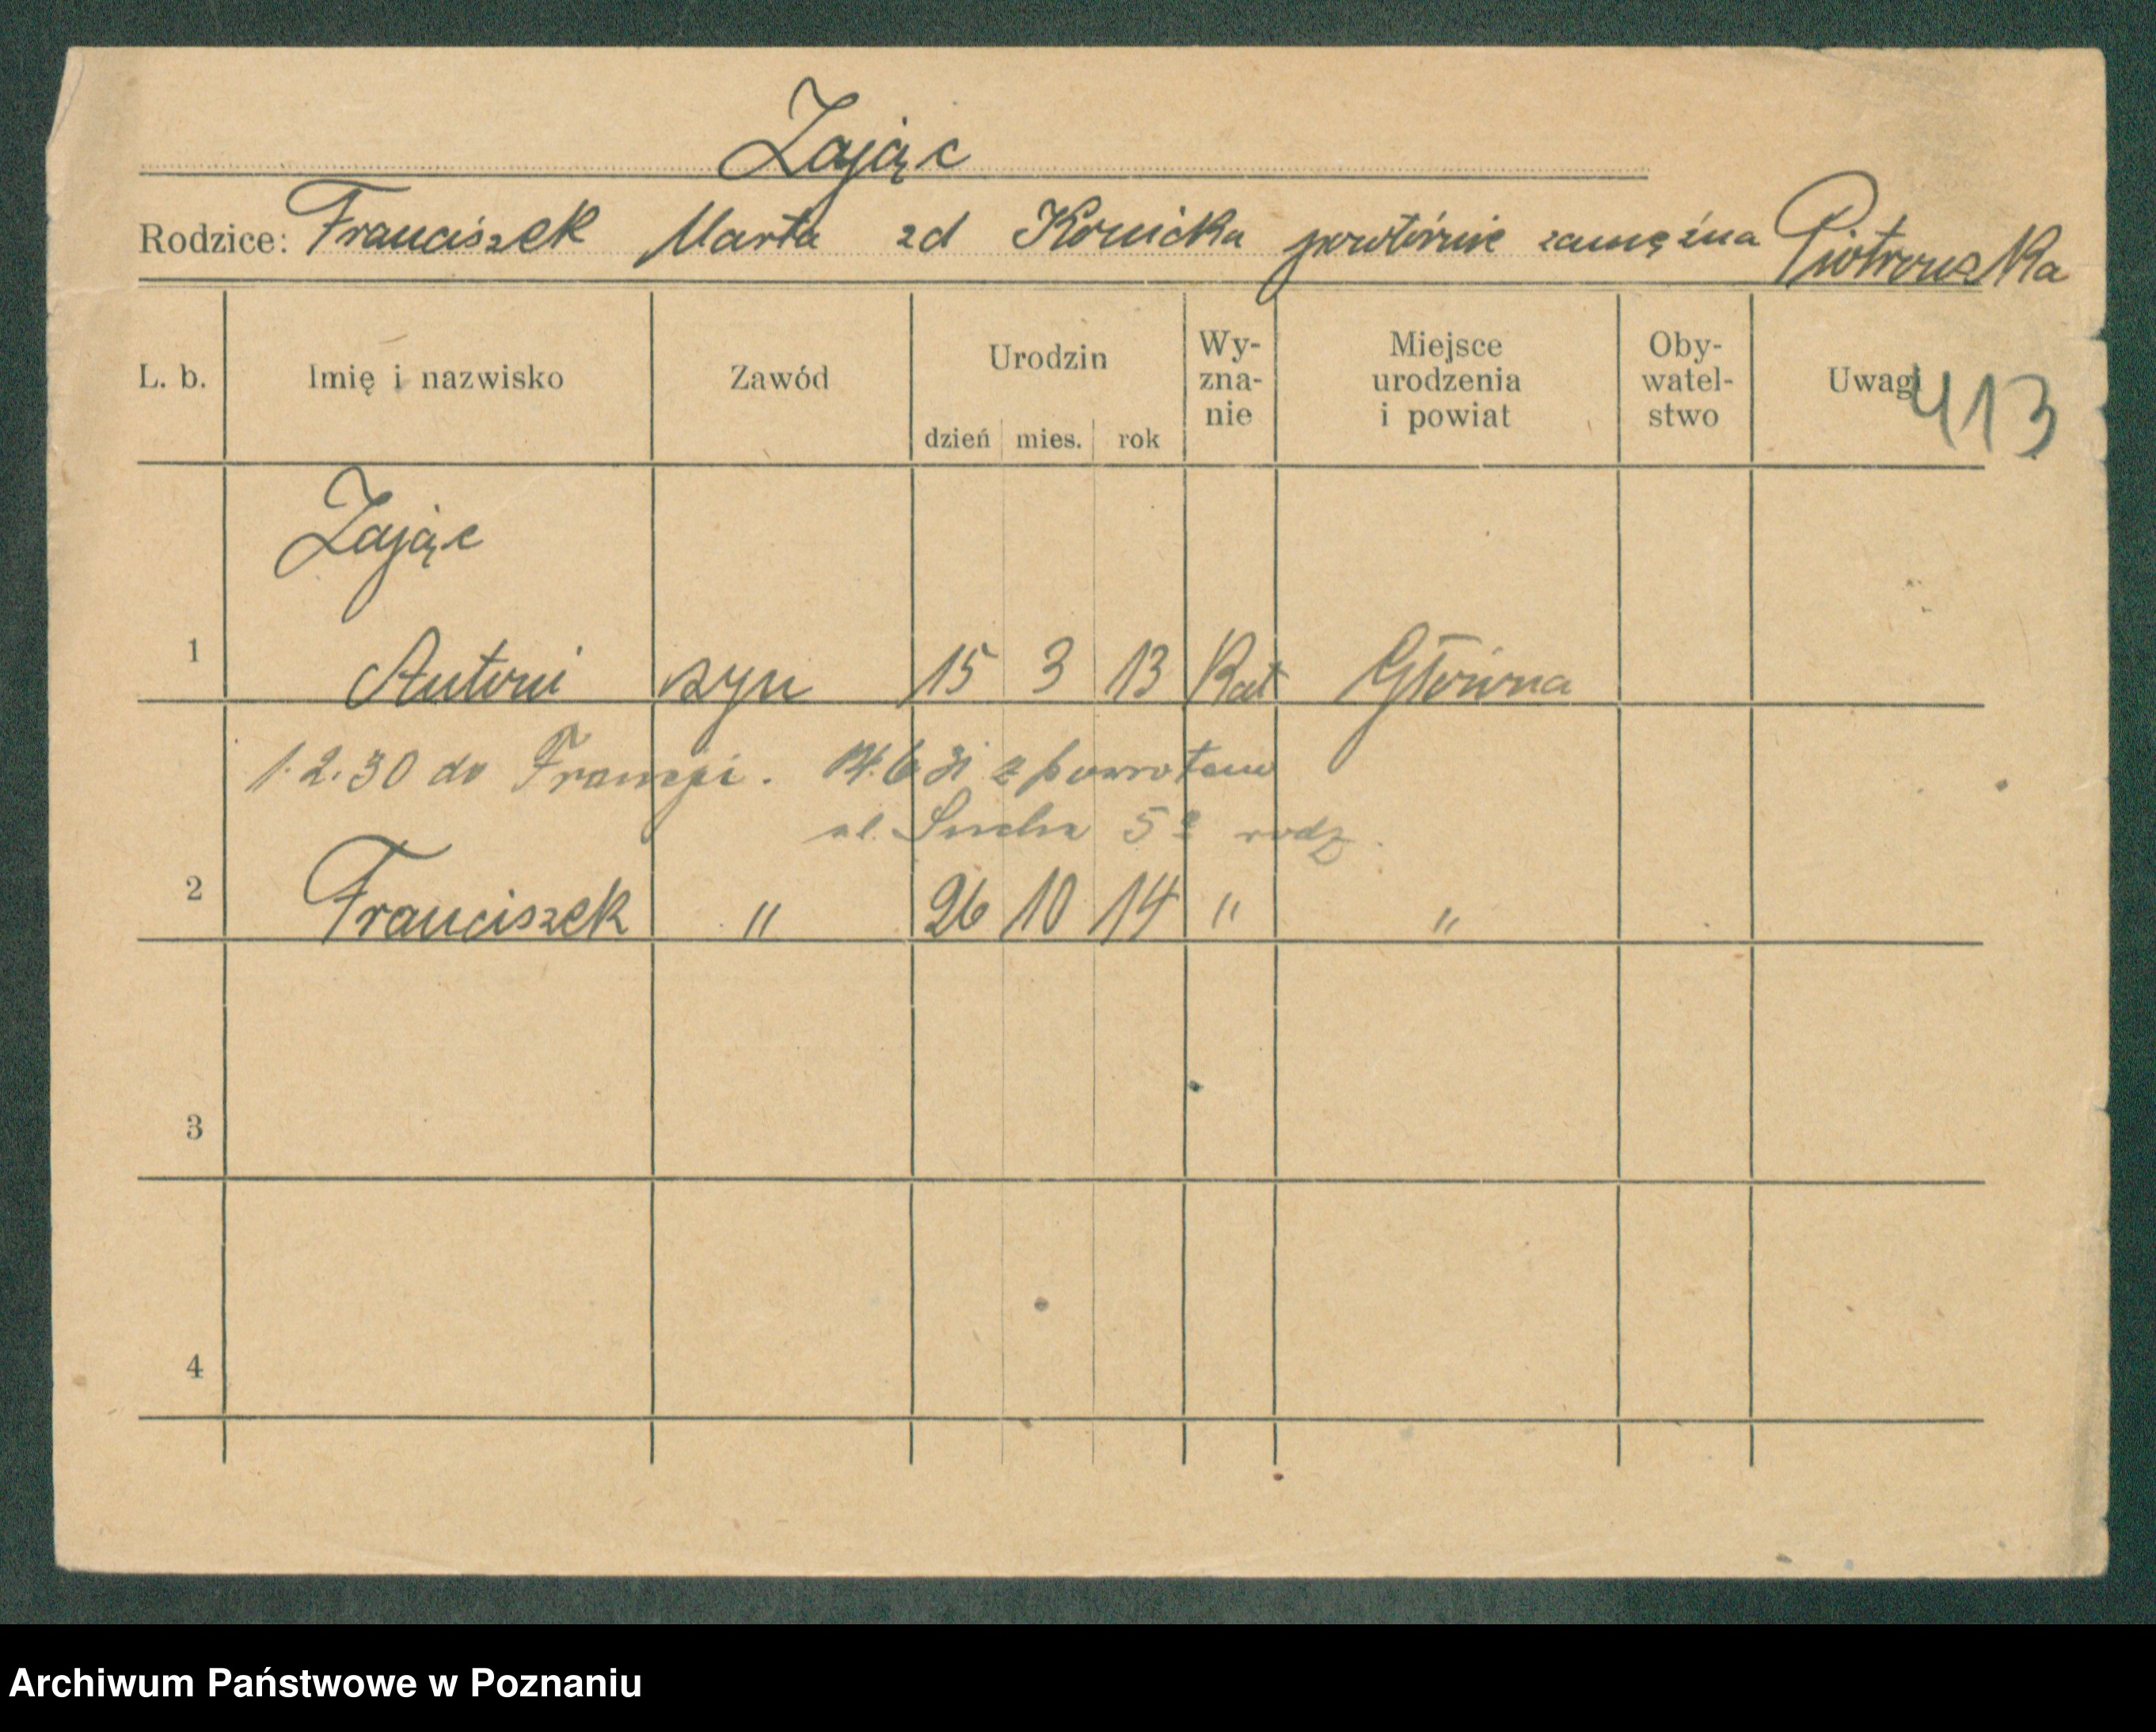 Zając
Rodzice: Franciszek Marta zd Kornicka powtórnie zamężna Piotrowska
L. b. Imię i nazwisko Zawód Urodzin dzień mies. rok Wy-zna-nie Miejsce urodzenia i powiat Oby-watel-stwo Uwagi 413
Zając
1 Antoni syn 15 3 13 Kat Główna
1.2.30 do Francji. 14.6 31 z powrotem
ul. Sucha 5 rodz.
2 Franciszek " 26 10 14 " "
3
4
Archiwum Państwowe w Poznaniu